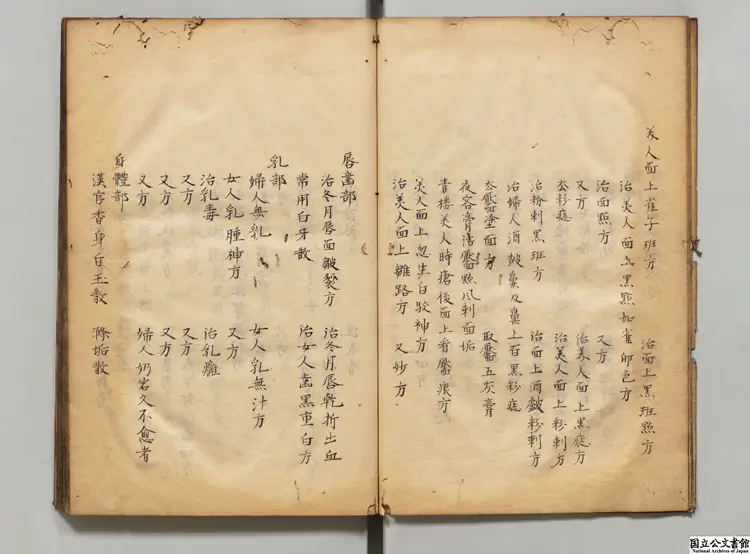 美人面上雀子班方　治面上黑班點方
治美人面上黑點如雀卵色方
治面點方　又方
又方　治美人面上黑痣方
去彩痣　治美人面上粉刺方
治粉刺黑班方　治面上酒皶粉刺方
治婦人酒皶鼻及鼻上有黑粉痣
去靨塗面方　取靨五灰膏
夜容膏治靨點風刺面垢
青樓美人時瘡後面上有靨痕方
美人面上忽生白駁神方
治美人面上雛路方　又妙方
唇齒部
治冬月唇面皴裂方　治冬月唇乾折出血
常用白牙散　治女人齒黑重白方
乳部
婦人無乳　方　女人乳無汁方
女人乳腫神方　又方
治乳毒　治乳癰
又方　又方
又方　又方
又方　婦人奶岩久不愈者
身體部
漢宮香身白玉散　滌垢散
国立公文書館
National Archives of Japan